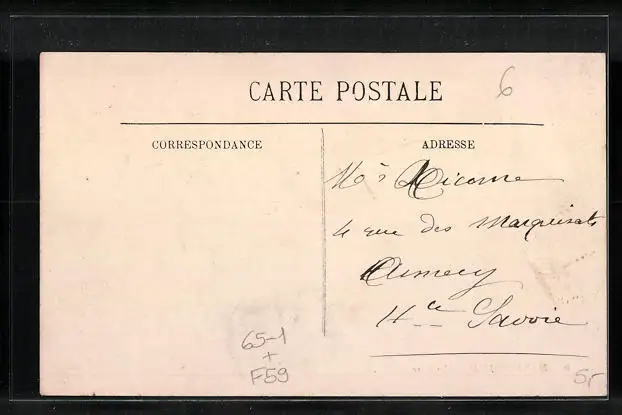 CARTE POSTALE
6
CORRESPONDANCE
ADRESSE
4 rue des Marquisats
Annecy
Hte Savoie
65-1
+
F59